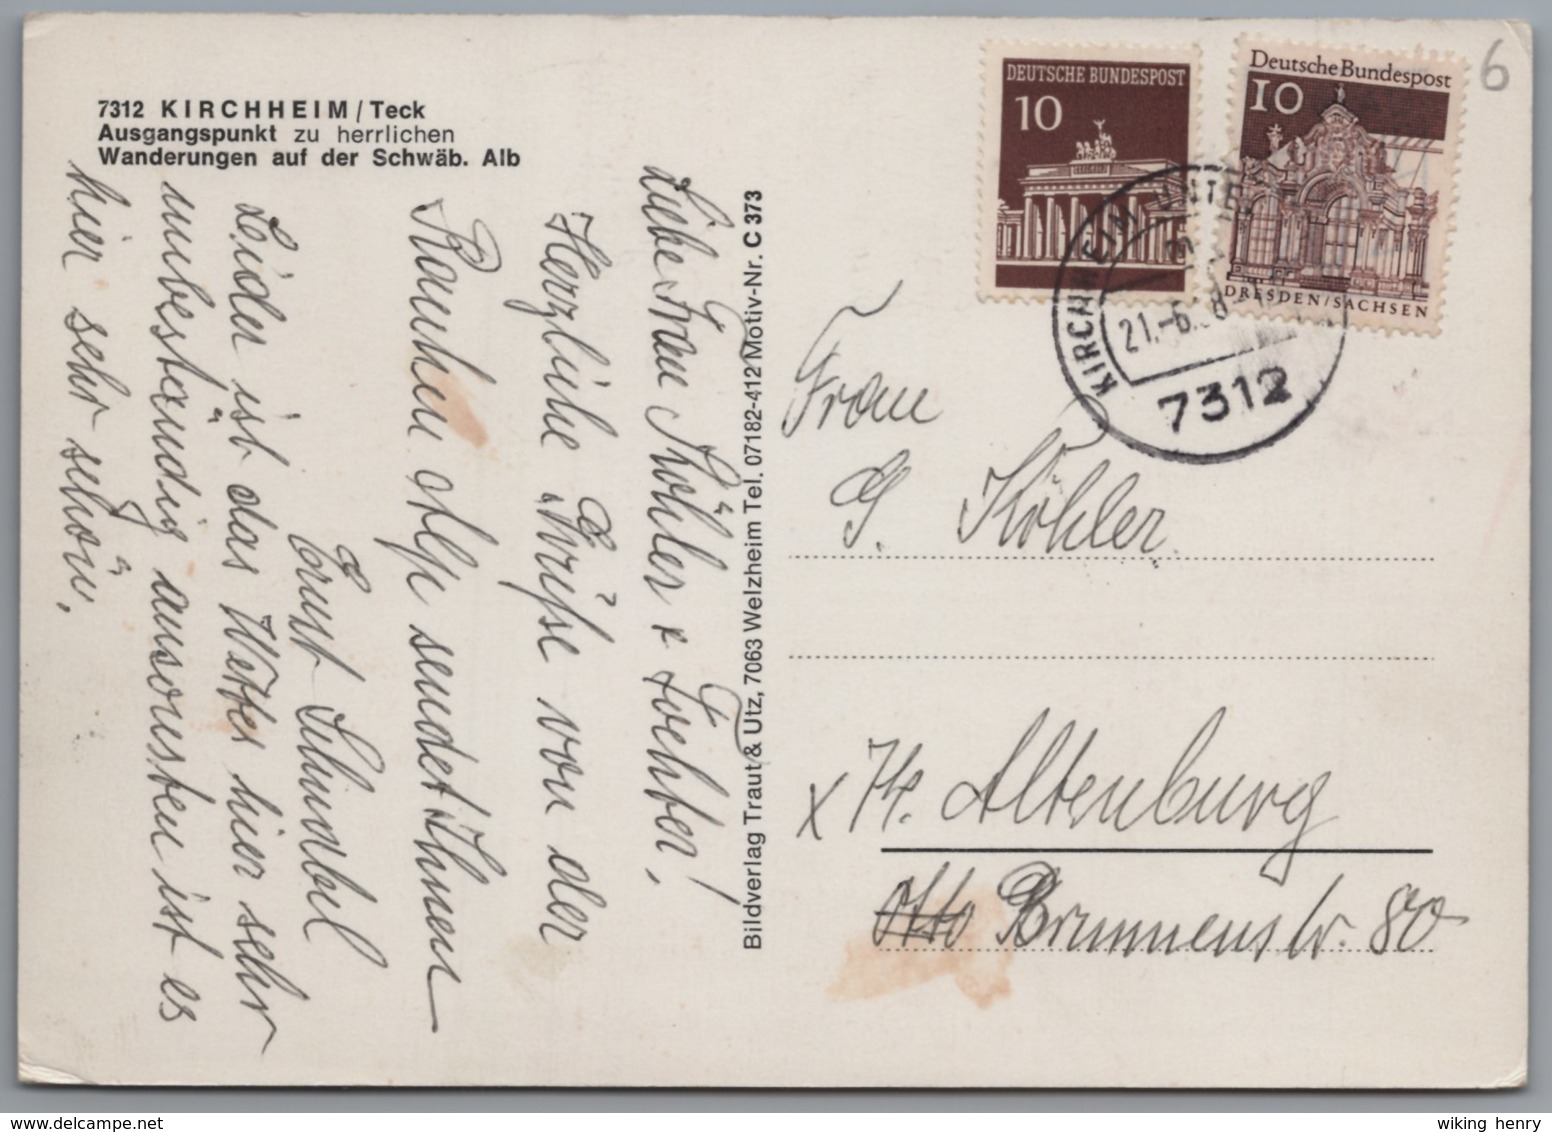 7312 KIRCHHEIM / Teck
Ausgangspunkt zu herrlichen
Wanderungen auf der Schwäb. Alb
Liebe Frau Köhler & Tochter!
Herzliche Grüße von der
Rauhen Alp sendet Ihnen
Ernst
Leider ist das Wetter hier sehr
unbeständig ansonsten ist es
hier sehr schön.
Bildverlag Traut & Utz, 7063 Welzheim Tel. 07182-412 Motiv-Nr. C 373
DEUTSCHE BUNDESPOST
10
Deutsche Bundespost
10
DRESDEN/SACHSEN
6
KIRCHHEIM UNTE
21.-6.
7312
Frau
G. Köhler
x Altenburg
Otto Brunnenstr. 80
wiking henry